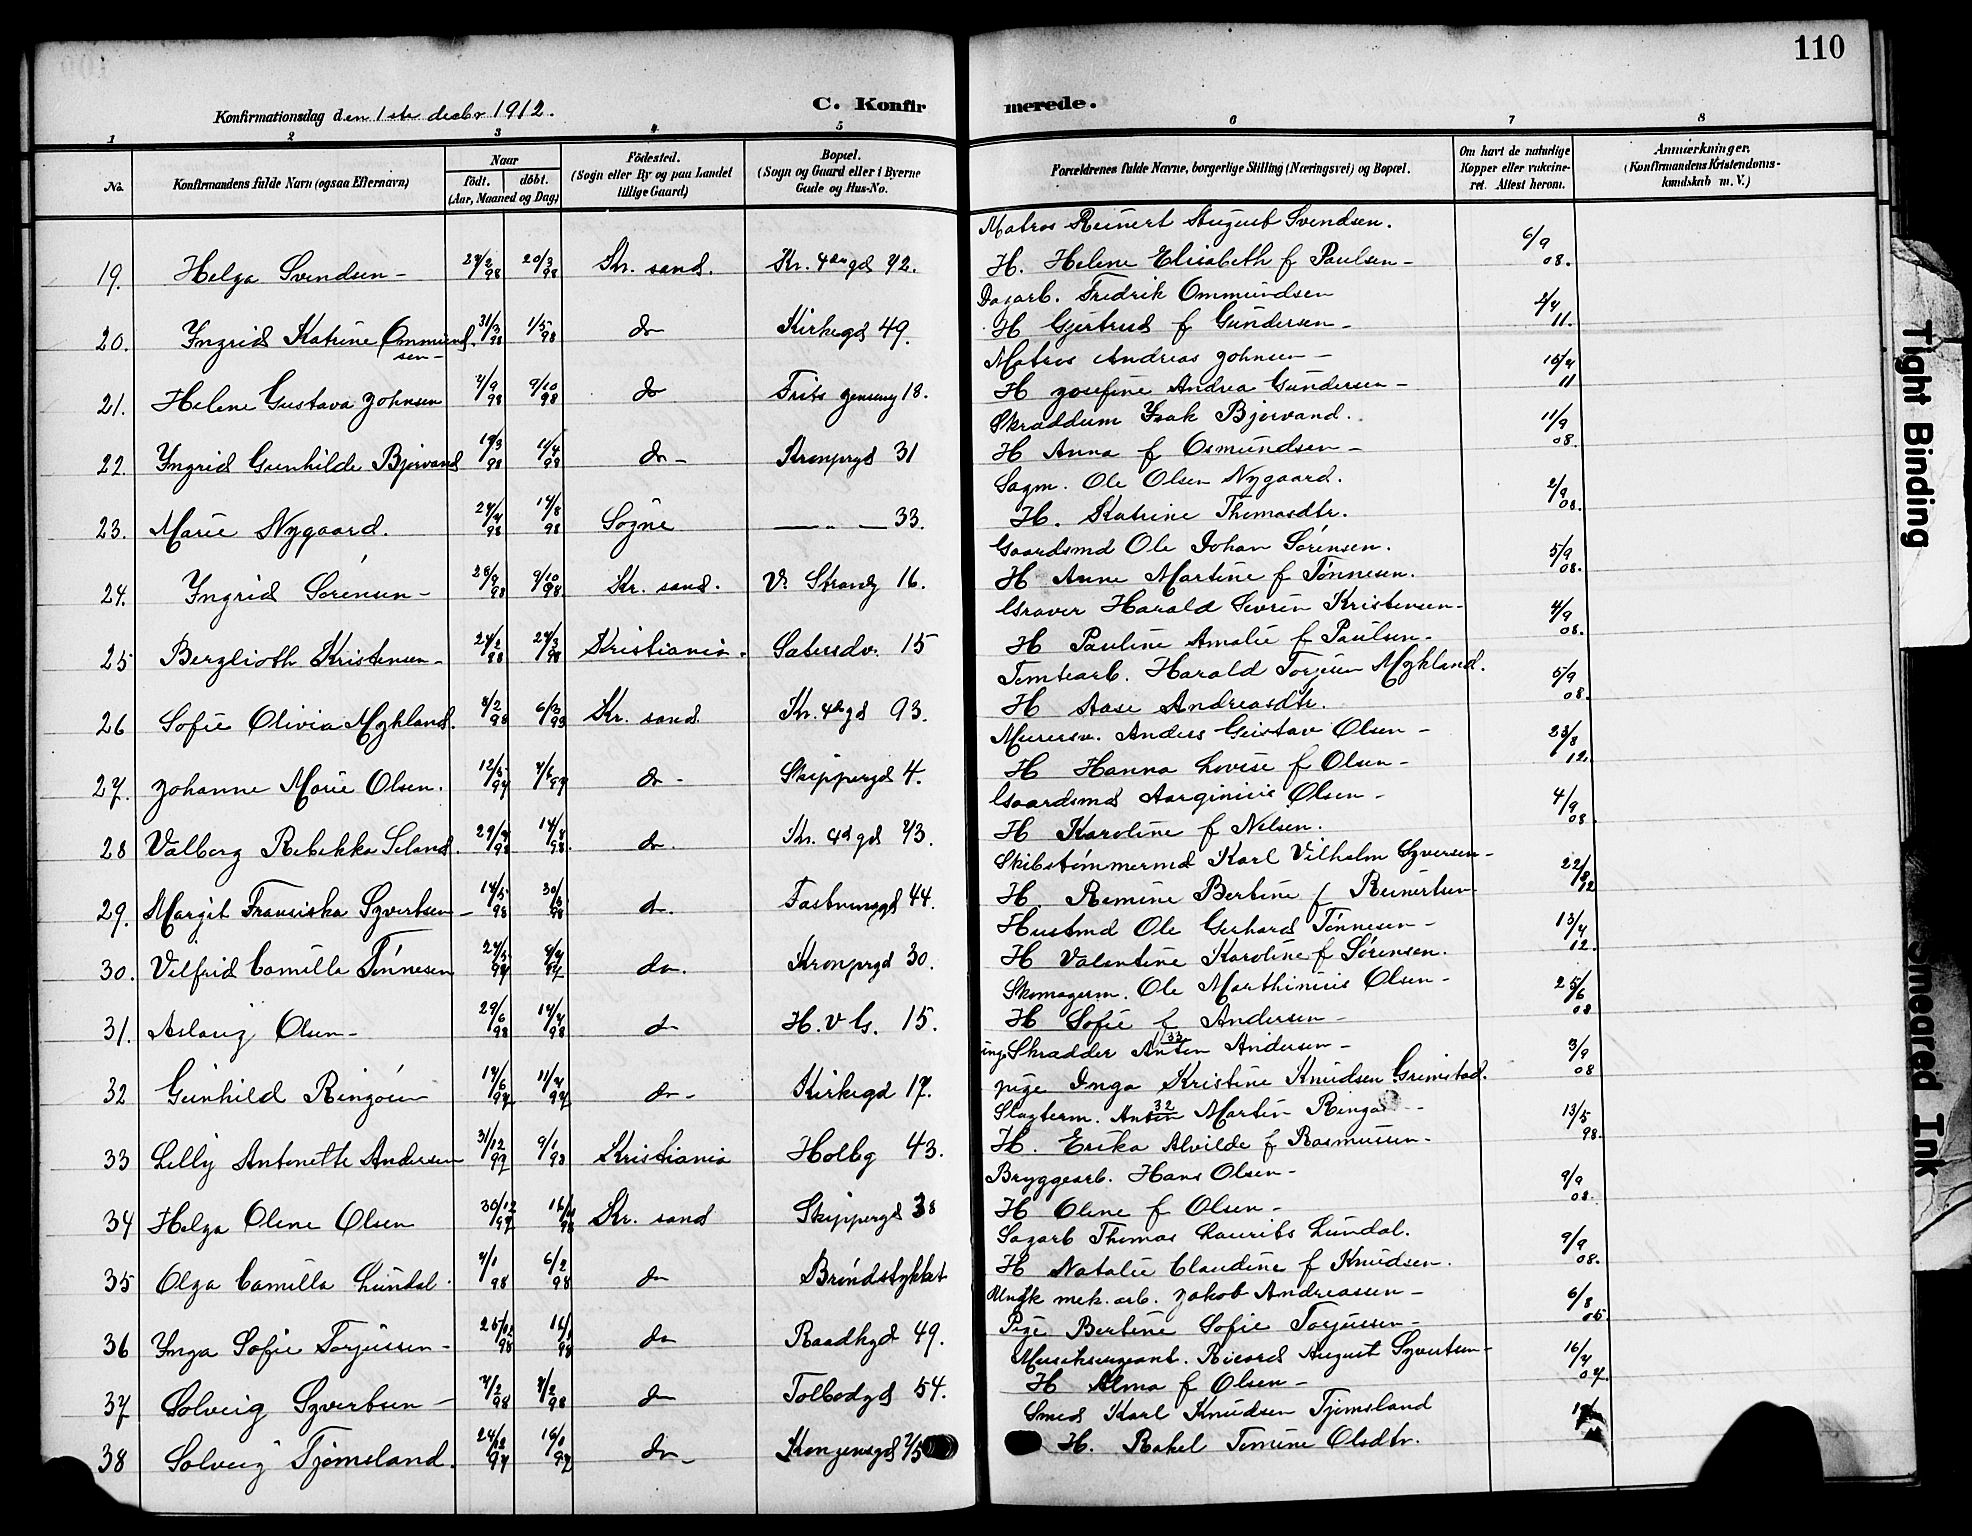 110
Konfirmationsdag den 1ste decbr 1912.
C. Konfirmerede.
1 2 3 4 5 6 7 8
No.
Konfirmandens fulde Navn (ogsaa Efternavn)
Naar
födt. döbt.
(Aar, Maaned og Dag)
Födested.
(Sogn eller By og paa Landet
tillige Gaard)
Bopæl.
(Sogn og Gaard eller i Byerne
Gade og Hus-No.
Forældrenes fulde Navne, borgerlige Stilling (Næringsvei) og Bopæl.
Om havt de naturlige
Kopper eller vakcine-
ret. Attest herom.
Anmærkninger.
(Konfirmandens Kristendoms-
kundskab m. V.)
Matros Reinert August Svendsen.
19. Helga Svendsen - 20/3 98 Kr. sand. Kr. 4de gd 72. H. Helene Elisabeth f Paulsen - 6/9 08.
Dagarb. Fredrik Ommundsen
20. Yngrid Katrine Ommund- 31/3 98 1/5 98 do Kirkegd 49. H Gjertrud f Gundersen - 11.
sen -
Matros Andreas Johnsen -
21. Helene Gustava Johnsen 7/9 98 9/10 98 do Frits Jensensg 18. H Josefine Andrea Gundersen - 11
Skrædderm Isak Bjorvand.
22. Yngrid Gunhilde Bjorvand 19/3 98 98 do - Kronprgd 31 H Anna f Osmundsen - 11/9 08.
Sagm. Ole Olsen Nygaard.
23. Marie Nygaard. 98 14/8 98 Sogne — " — 33. H. Katrine Thomasdtr. 2/9 08.
Gaardsmd Ole Johan Sörensen.
24. Yngrid Sörensen - 98 9/10 98 Kr. sand. V. Strandg 16. H Anne Martine f Tönnesen. 5/9 08.
Graver Harald Severin Kristensen -
25 Berglioth Kristensen - 98 98 Kristiania. Satersdv. 15 H Pauline Amalie f Paulsen - 4/9 08.
Tomtearb. Harald Torjesen Mykland.
26 Sofie Olivia Mykland. 98 6/3 98 Kr. sand. Kr. 4de gd 93. H Aase Andreasdtr. 5/9 08.
Murersv. Anders Gustav Olsen -
27. Johanne Marie Olsen. 12/5 97 97 do - Skippergd 4. H Hanna Lovise f Olsen - 23/8 12.
Gaardsmd Aarginius Olsen -
28 Valborg Rebekka Seland. 98 14/8 98. do. Kr. 4d gd 73. H Karoline f Nilsen. 4/9 08.
Skibstömmermd Karl Vilhelm Syversen -
29. Margit Fransiska Syvertsen - 14/5 98 98 do. Fæstningsgd 44. H. Remine Bertine f Reinertsen 22/8 12
Hustmd Ole Gerhard Tönnesen -
30. Vilfrid Camilla Tönnesen do. Kronprgd 30. H Valentine Karoline f Sörensen. 12.
Skomagerm. Ole Marthinius Olsen -
31. Aslaug Olsen - 29/6 98 98 do H. v G. 15. H Sofie f Andersen - 25/6 08
ung. Skrædder Anton Andersen - 33
32 Gunhild Ringöen do - Kirkegd 17. pige Inga Kristine Knudsen Grimstad. 3/9 08
Slagterm. Anton Martin Ringö 32
33 Lelly Antonette Andersen 31/12 97 9/1 98 Kristiania Holbg 43. H. Erika Alvilde f Rasmussen - 13/5 98.
Bryggearb. Hans Olsen -
34 Helga Oline Olsen 30/12 97 98 Kr. sand Skippergd 38 H Oline f Olsen - 9/9 08.
Sagarb Thomas Laurits Lundal.
35 Olga Camilla Lundal. 98 6/2 98 do Bröndstykket H Natalie Claudine f Knudsen. 9/9 08.
Ungk mek. arb. Jakob Andreassen -
36 Ynga Sofie Torjussen - 98 do Raadhgd 49. Pige Bertine Sofie Torjussen - 6/8 05.
Musiksergeant. Ricard August Syvertsen -
37 Solveig Syvertsen - 98 98 do Tolbodgd 54. H Alma f Olsen - 07.
Smed Karl Knudsen Tjomsland
38 Solveig Tjomsland. 97 do - Kongensgd H. Rakel Tomine Olsdtr.
Tight Binding
Smeared Ink